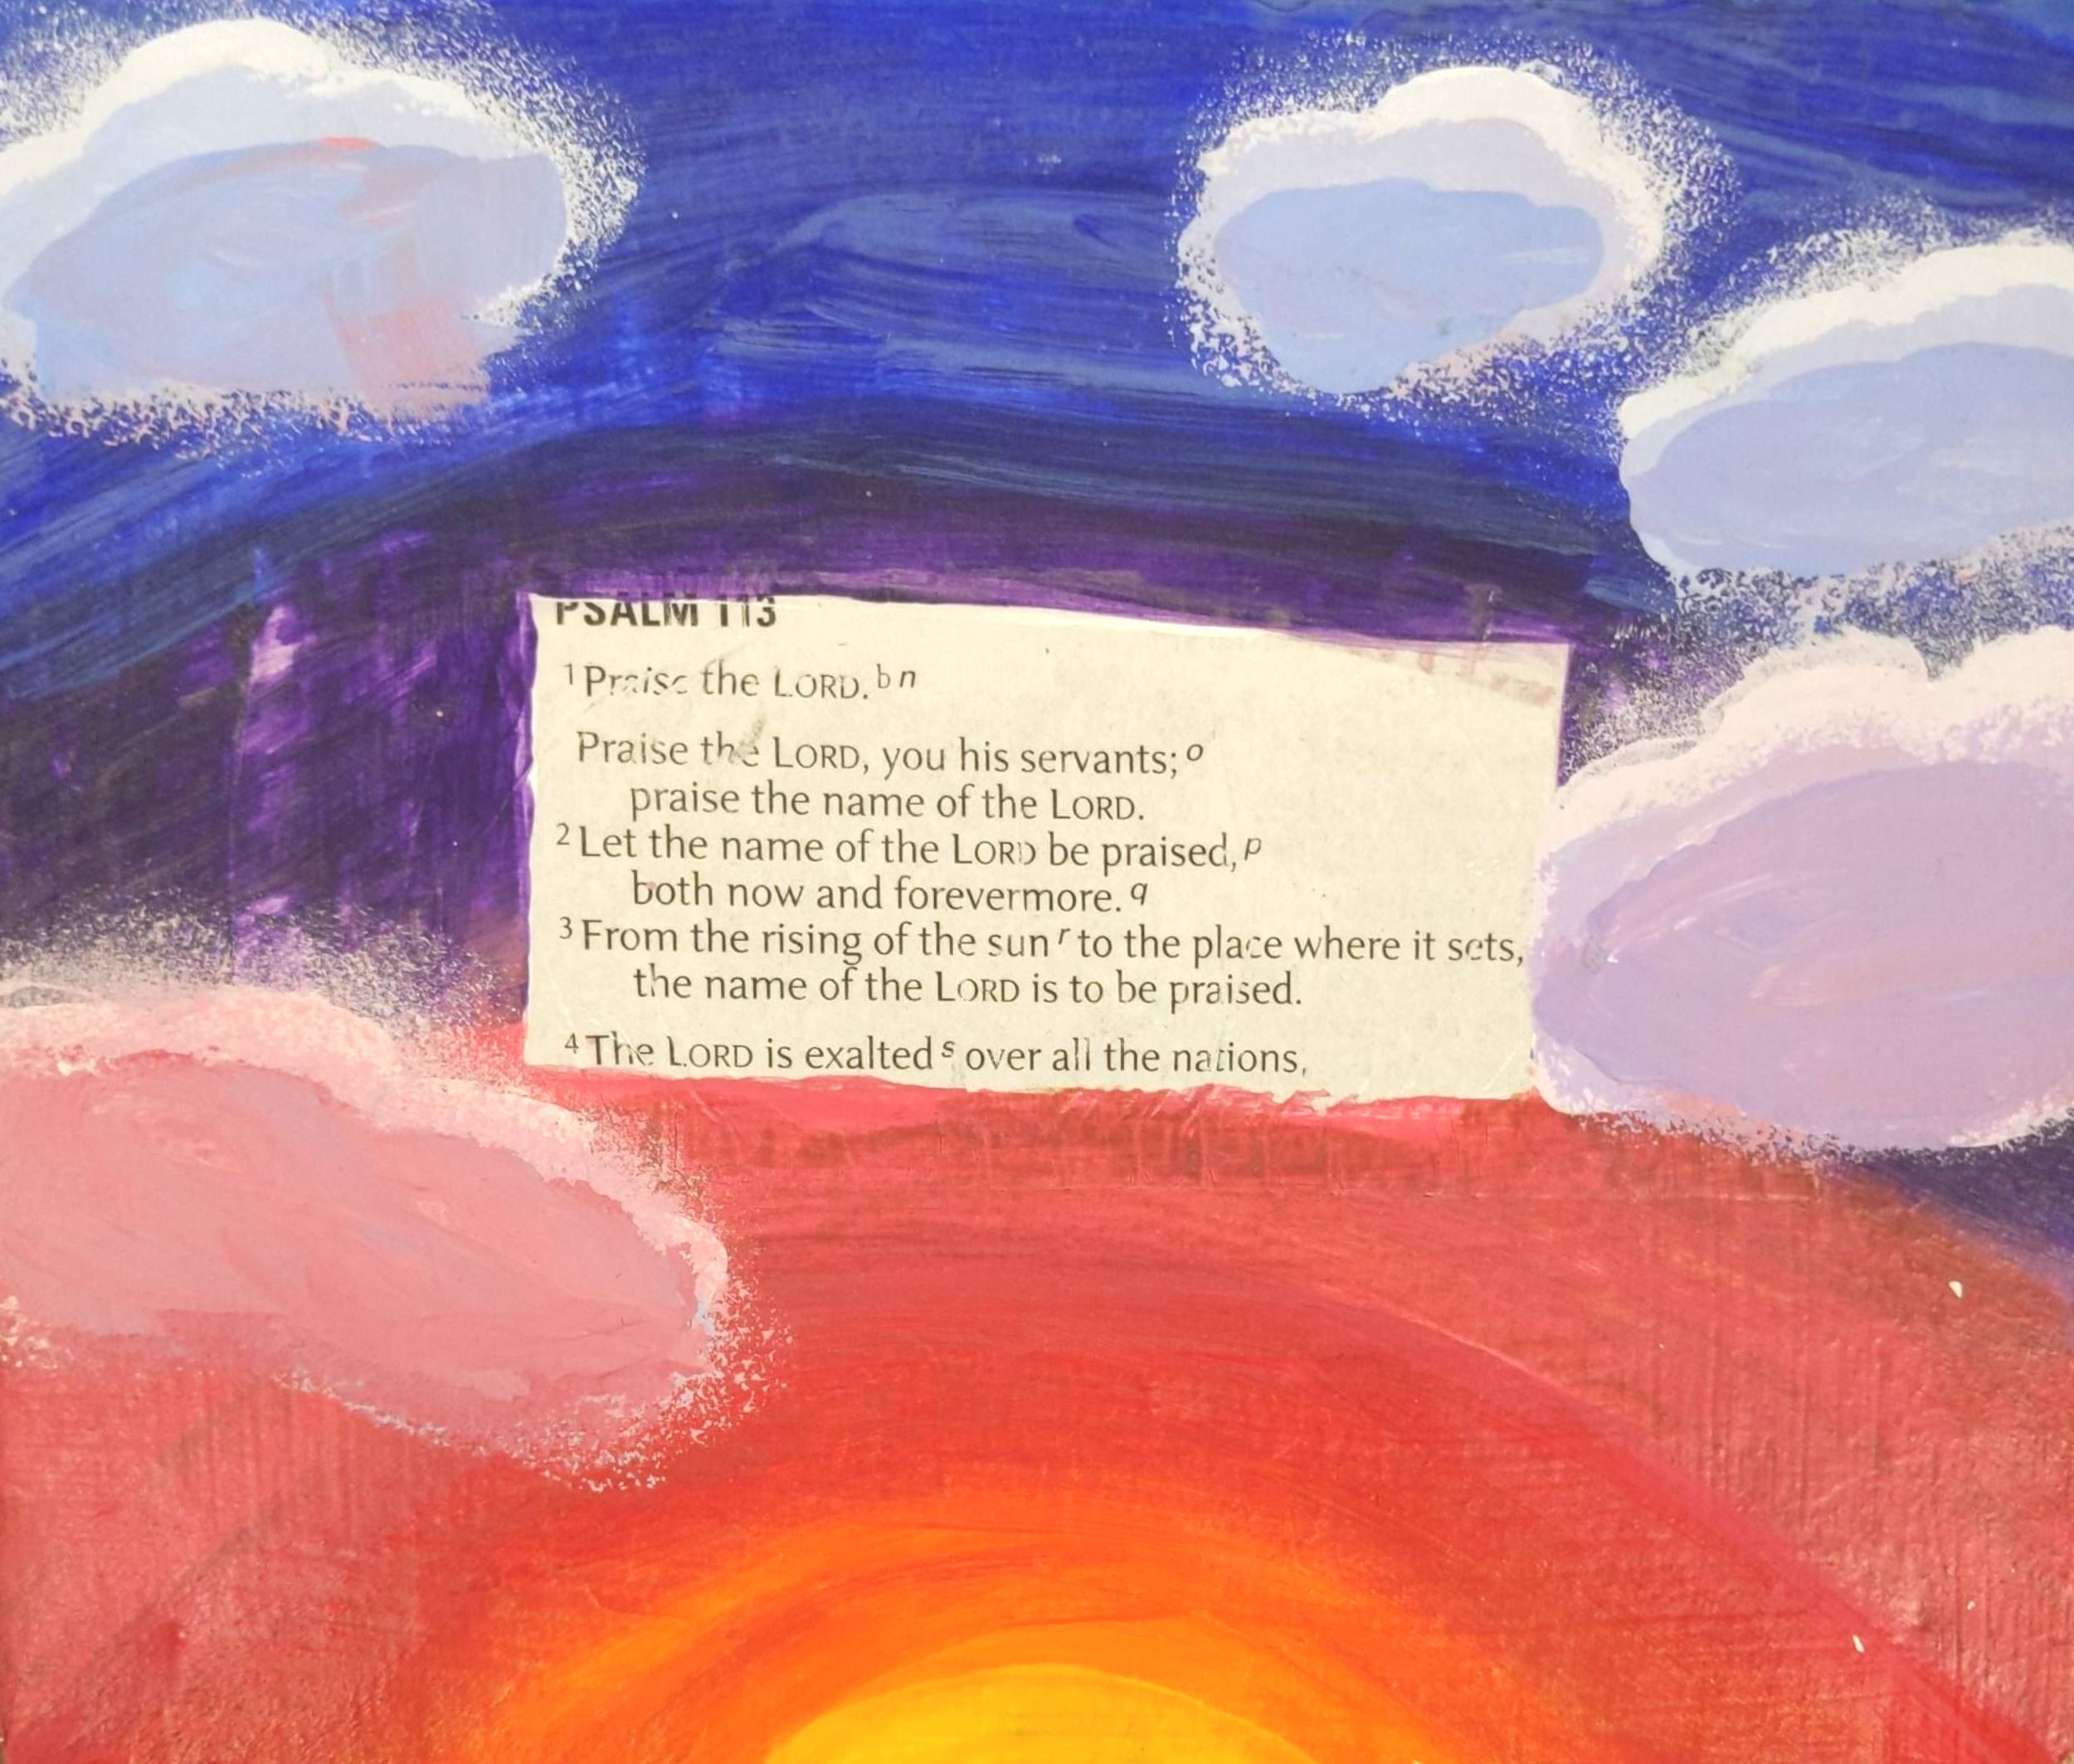 PSALM 113
1 Praise the LORD. b n
Praise the LORD, you his servants; o
praise the name of the LORD.
2 Let the name of the LORD be praised, p
both now and forevermore. q
3 From the rising of the sun r to the place where it sets,
the name of the LORD is to be praised.
4 The LORD is exalted s over all the nations,